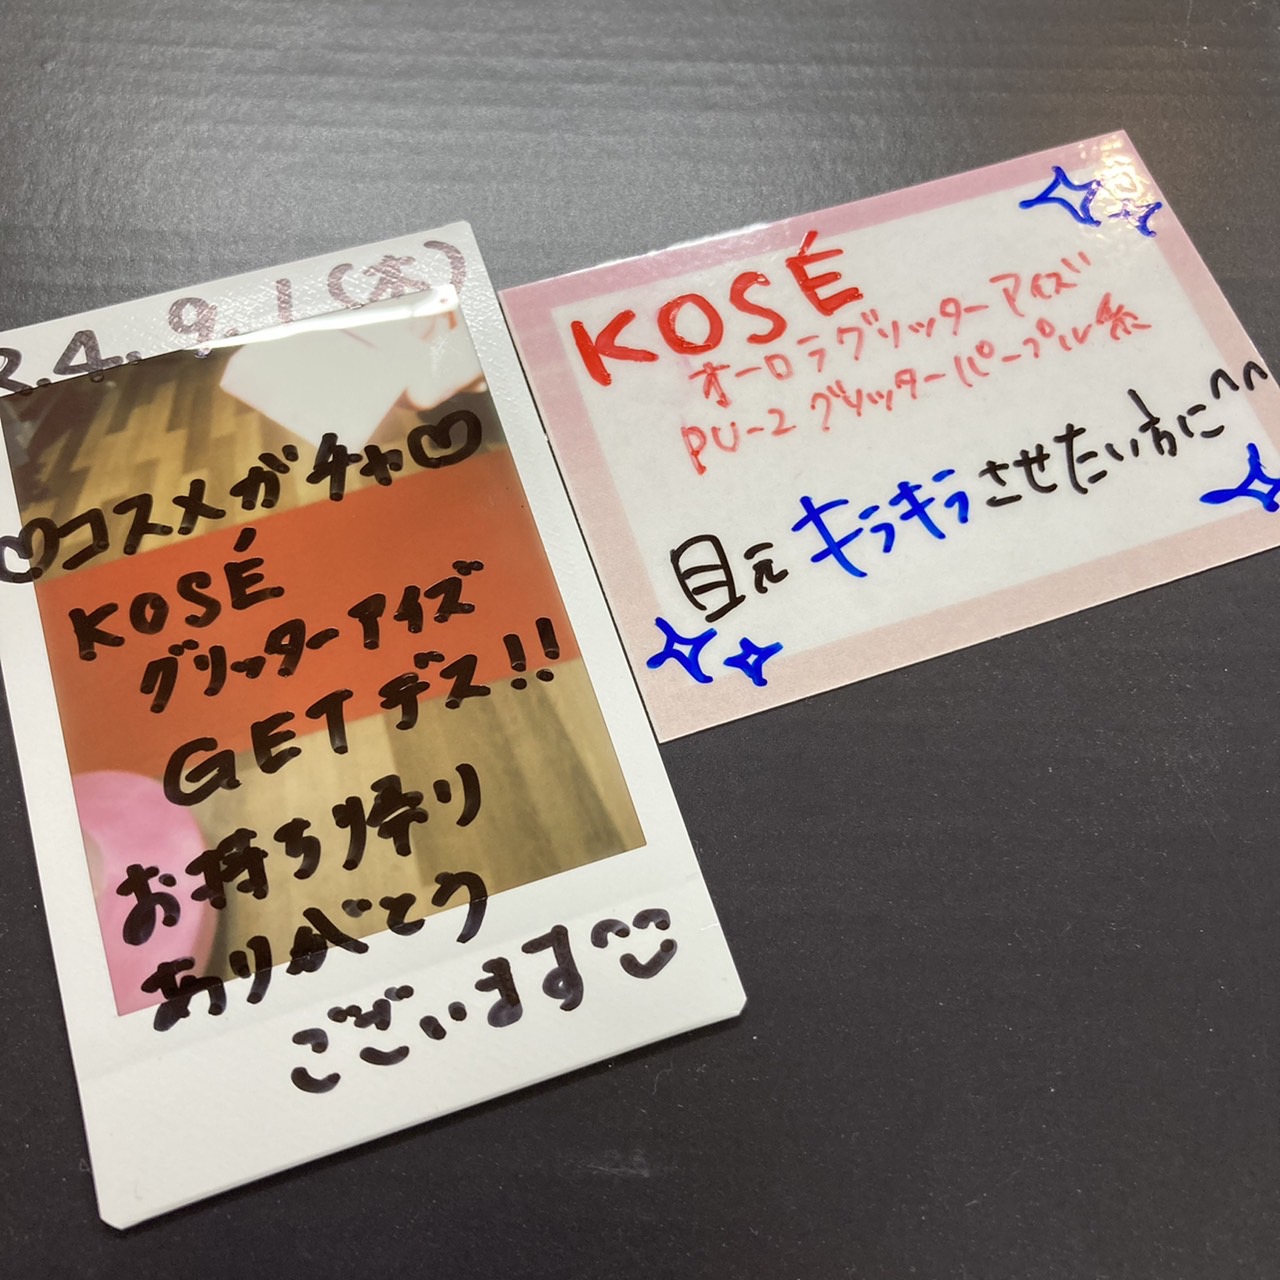 R.4.9.1(木)
♡コスメガチャ♡
KOSÉ
グリッターアイズ
GETデス!!
お持ち帰り
ありがとう
ございます
KOSÉ
オーロラグリッターアイズ
PU-2 グリッターパープル系
目元キラキラさせたい方に^^